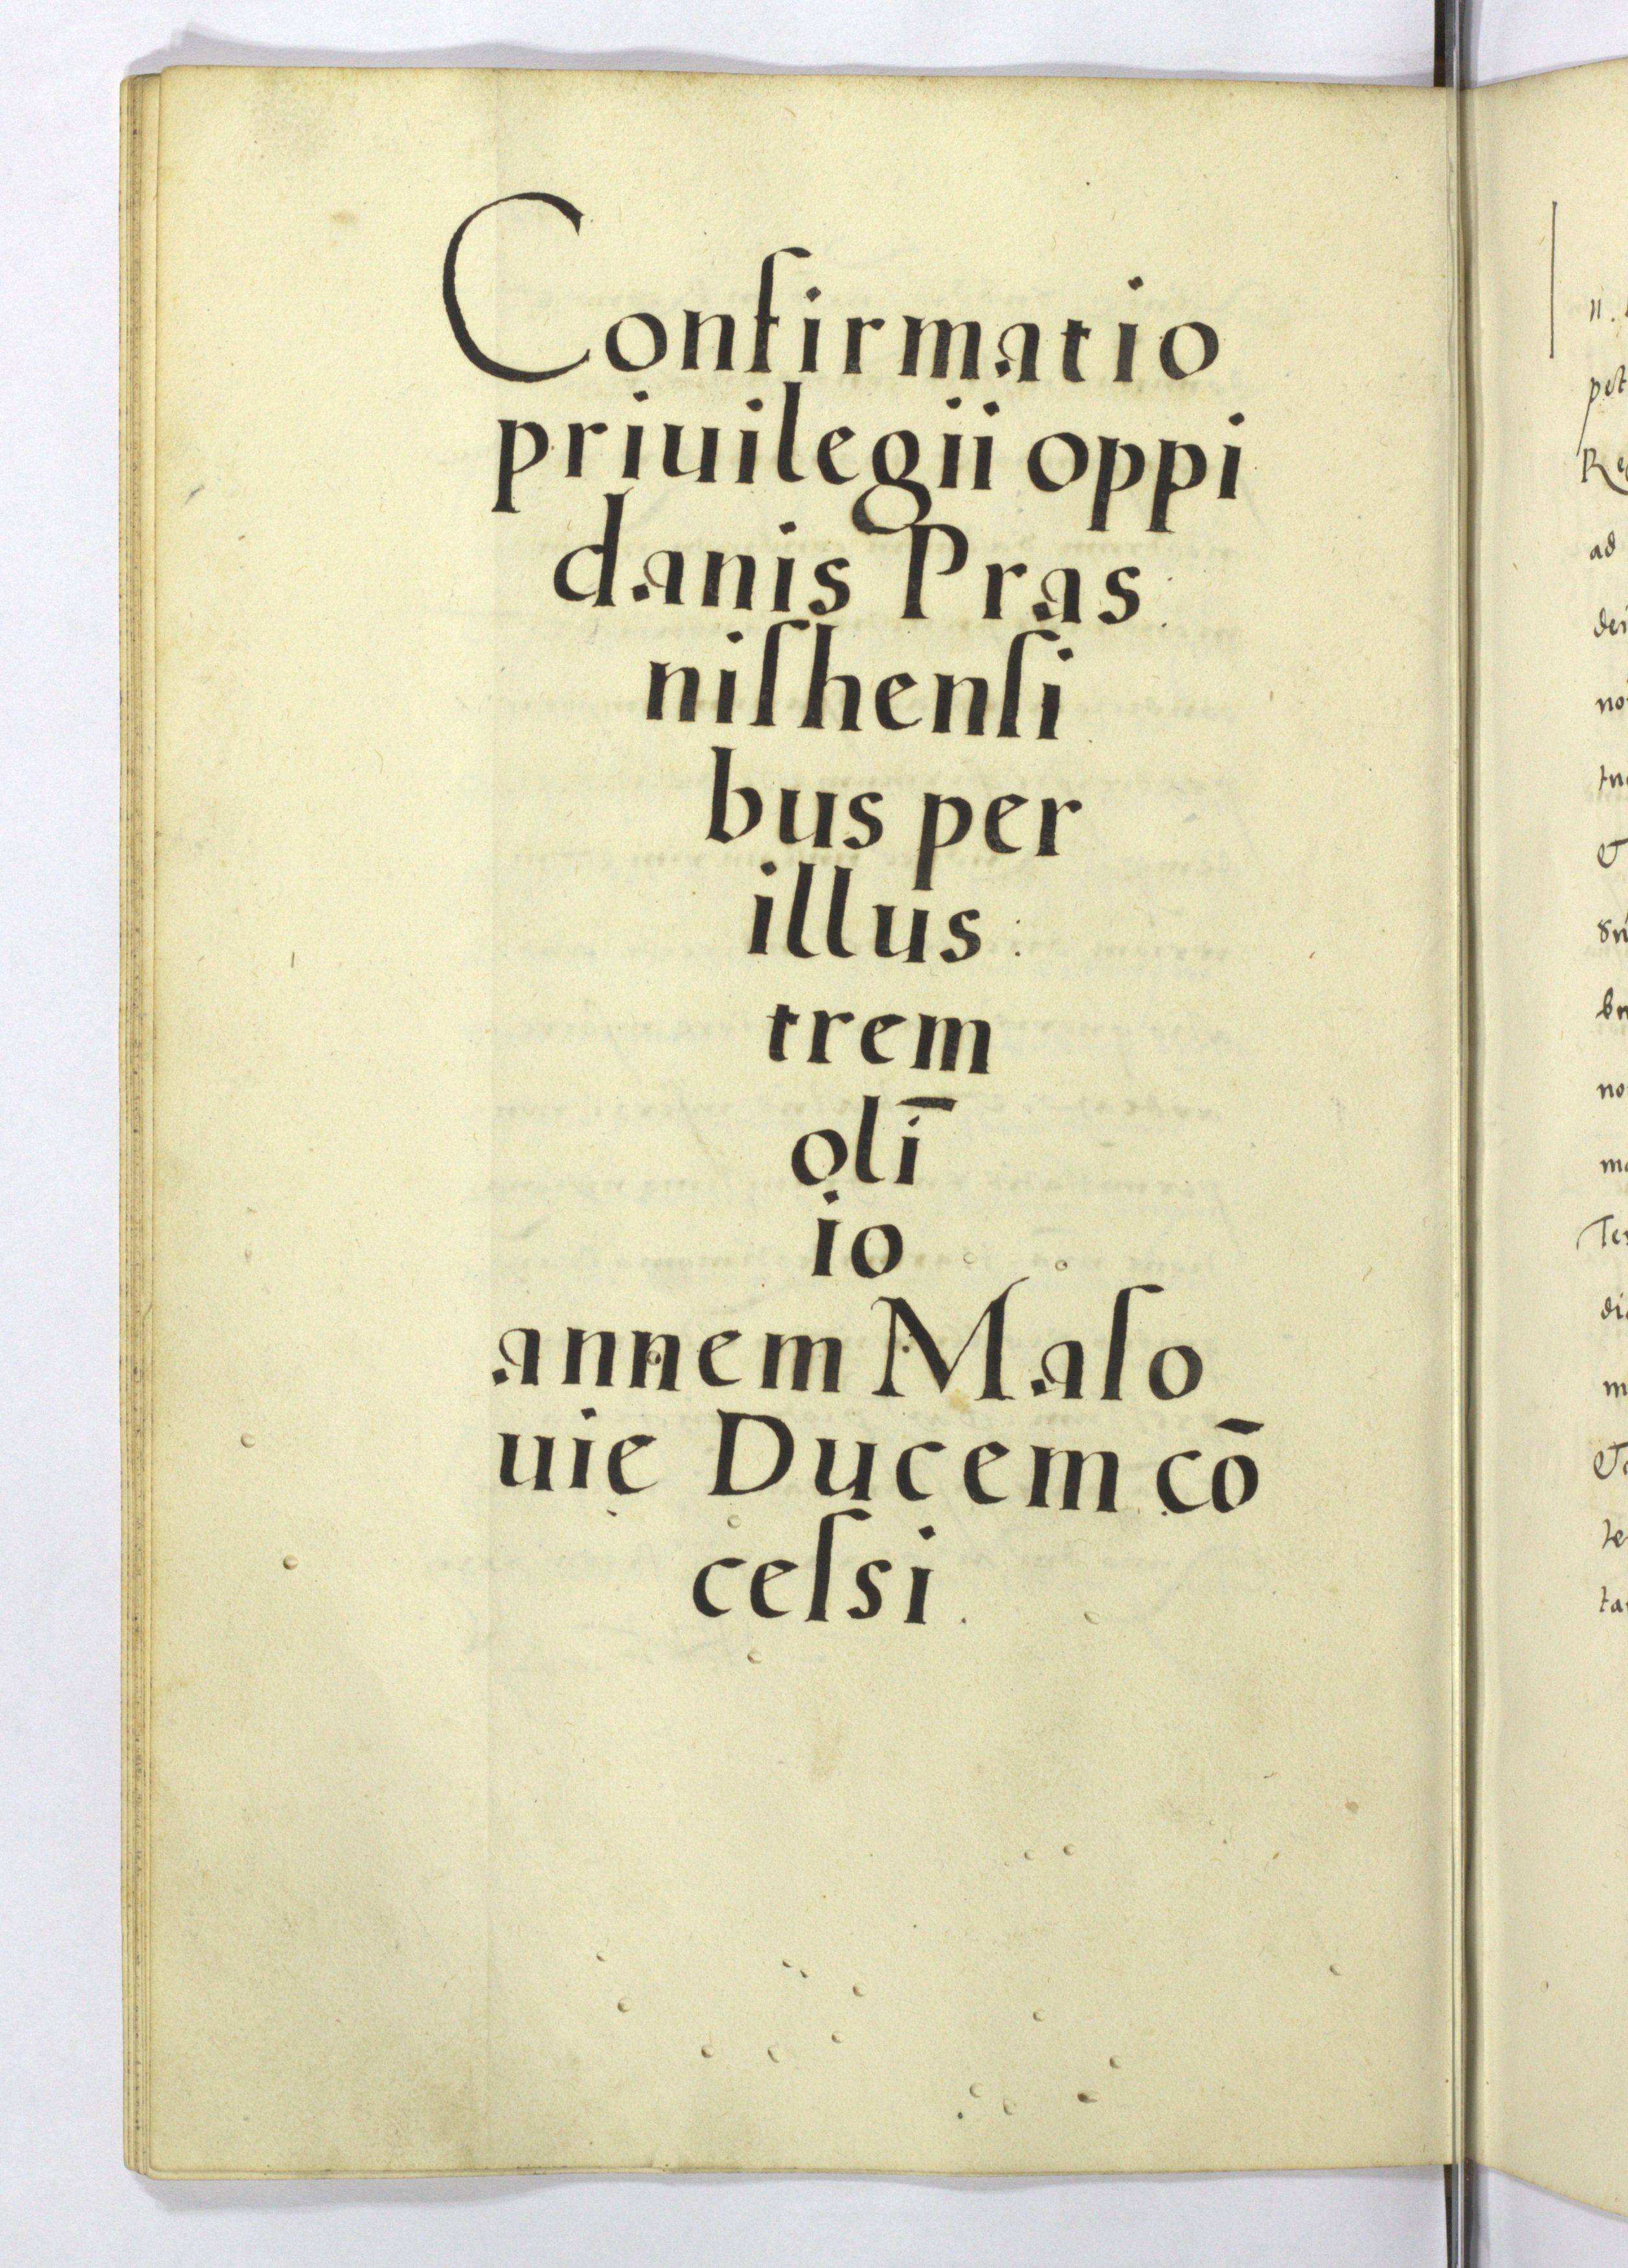 Confirmatio
priuilegii oppi
danis Pras:
niſhenſi
bus per
illus:
trem
olī
io
annem Maſo
uię Ducem cō
ceſsi.